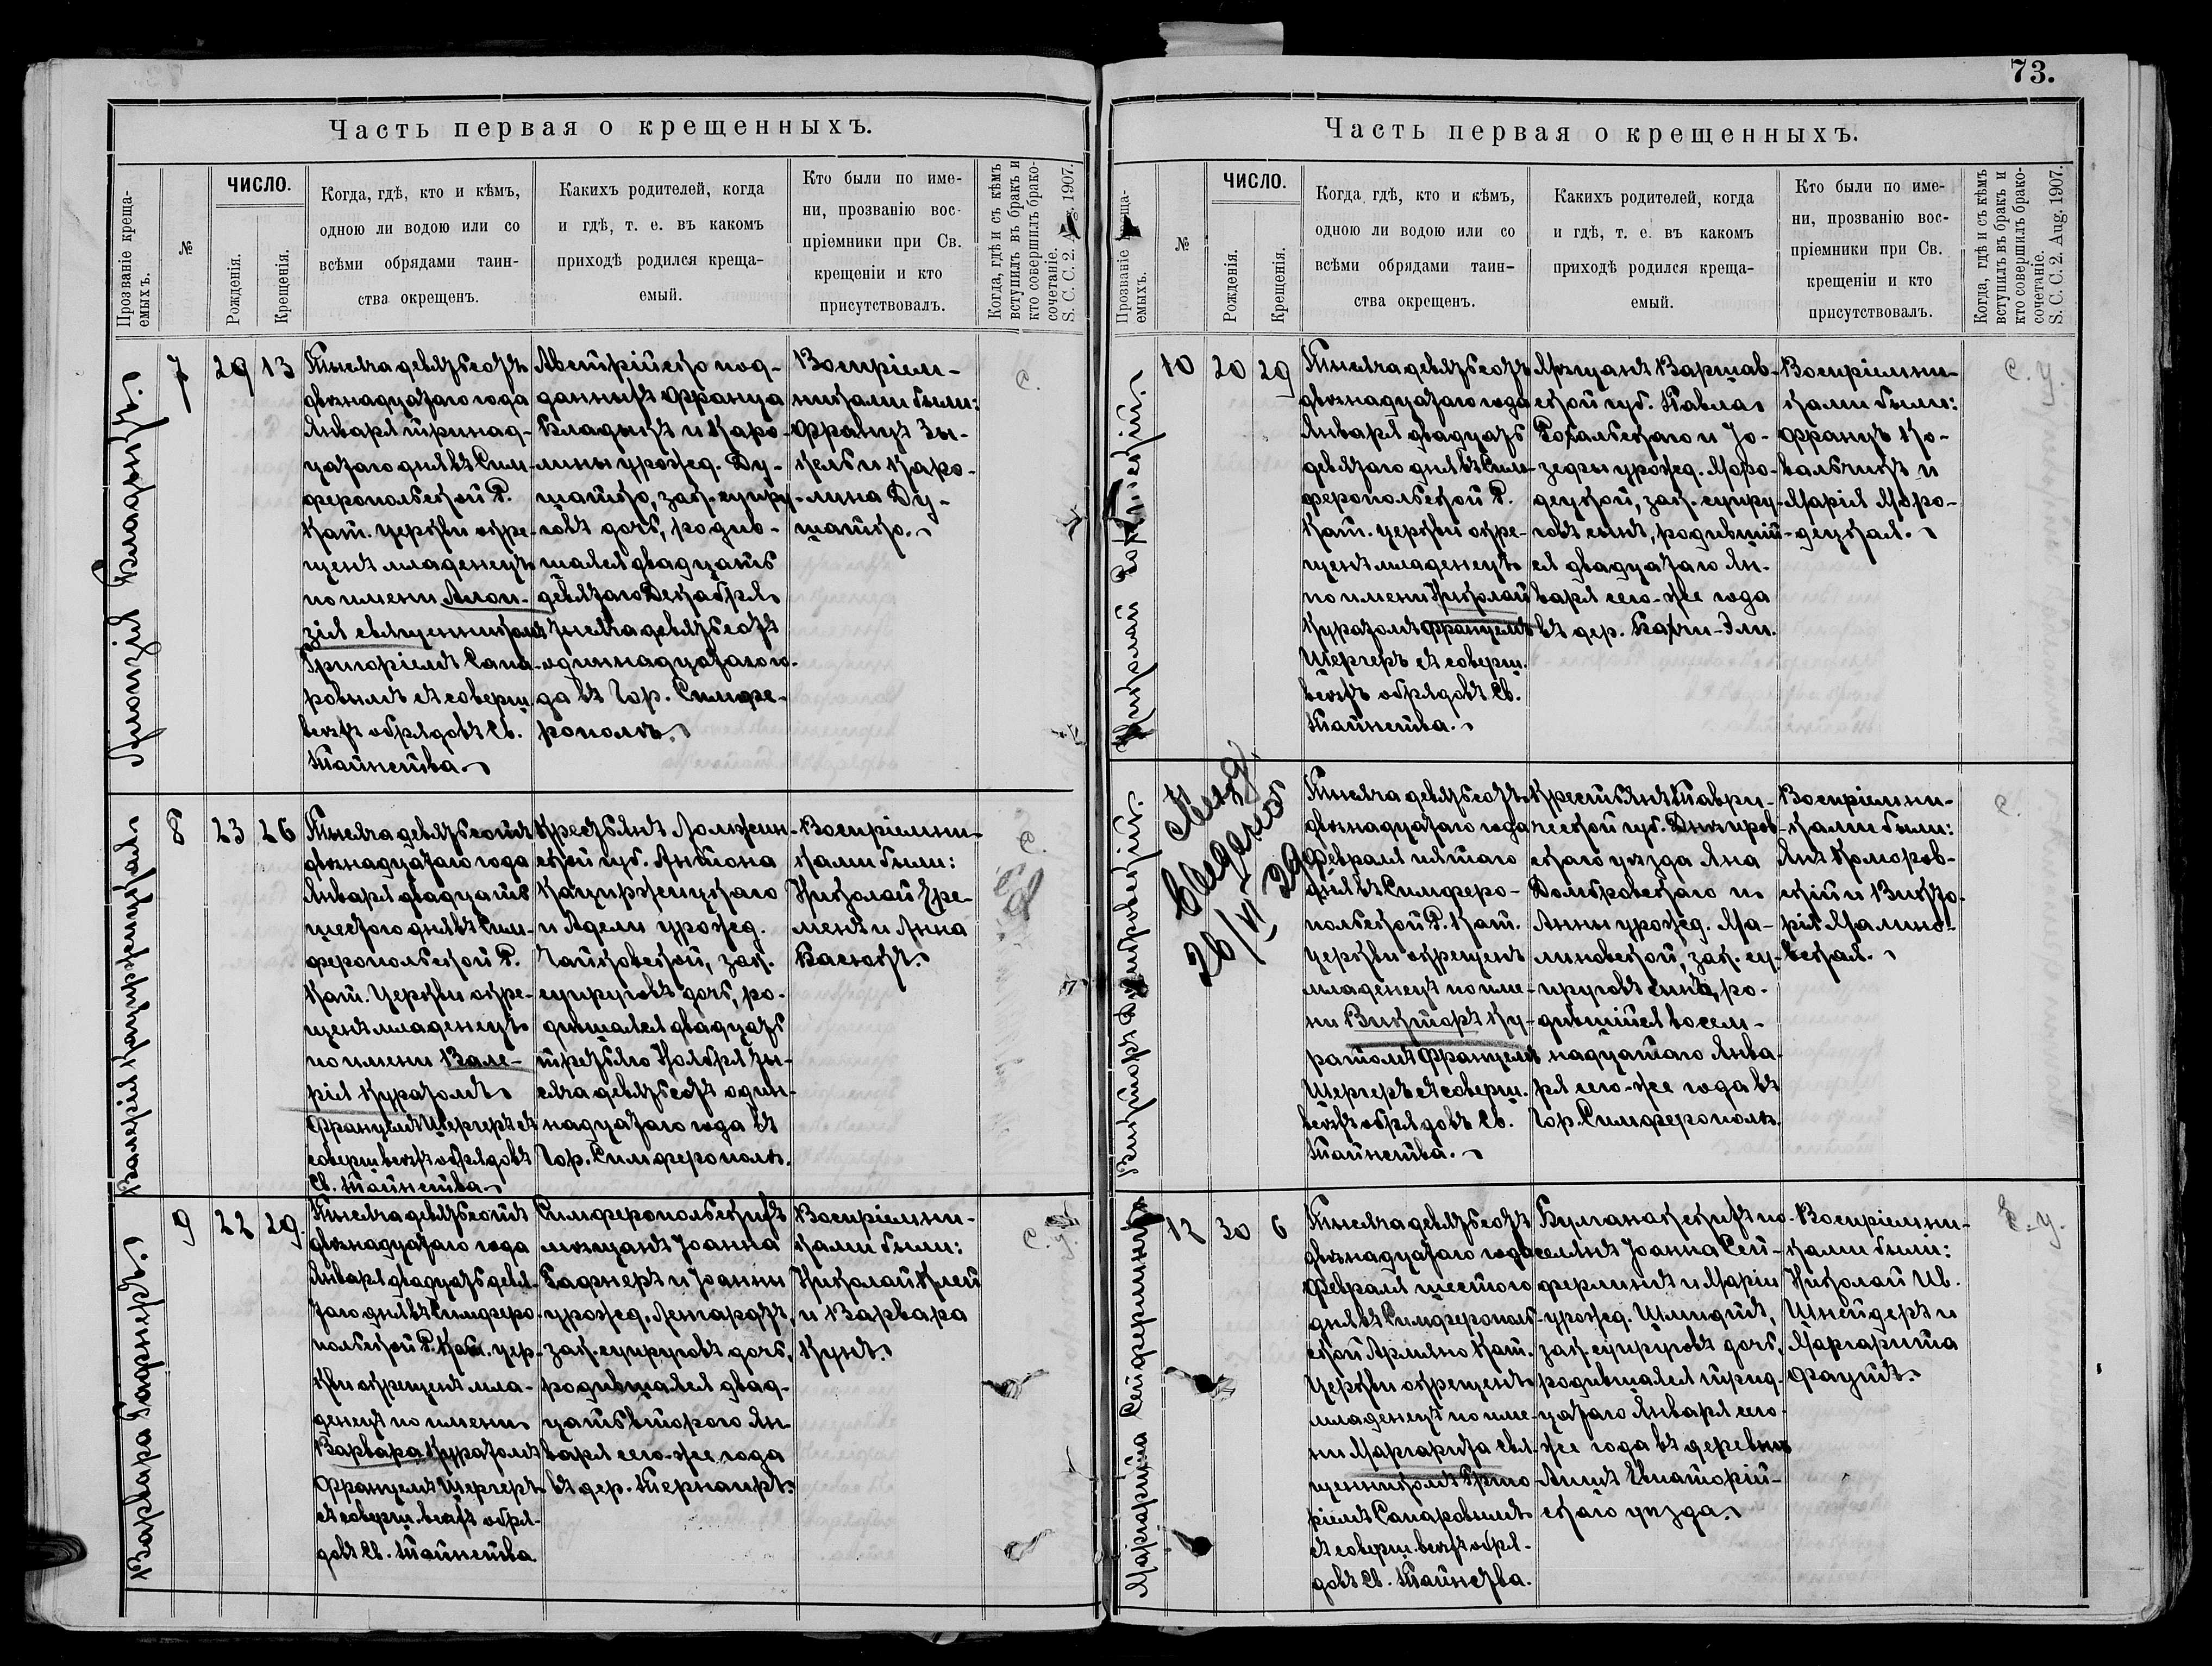 Часть первая о крещенныхъ.
Прозваніе креща-
емыхъ.
№
ЧИСЛО.
Рожденія.
Крещенія.
Когда, гдѣ, кто и кѣмъ,
одною ли водою или со
всѣми обрядами таин-
ства окрещенъ.
Какихъ родителей, когда
и гдѣ, т. е. въ какомъ
приходѣ родился креща-
емый.
Кто были по име-
ни, прозванію вос-
пріемники при Св.
крещеніи и кто
присутствовалъ.
Когда, гдѣ и съ кѣмъ
вступилъ въ бракъ и
кто совершилъ брако-
сочетаніе.
S. C. C. 2. Aug. 1907.
Алоизія Владыка.
7
29
13
Тысяча девятьсотъ
двѣнадцатаго года
Января тринад-
цатаго дня въ Сим-
феропольской Р.
Кат. церкви окре-
щенъ младенецъ
по имени Алои-
зія священникомъ
Григоріемъ Сапа-
ровымъ съ соверш.
всѣхъ обрядовъ Св.
Таинства.
Австрійско под-
данныхъ Франца
Владыкъ и Каро-
лины урожд. Ду-
шатко, зак. супру-
говъ дочь, родив-
шаяся двадцать
девятаго Декабря
тысяча девятьсотъ
одиннадцатаго го-
да въ Гор. Симфе-
рополѣ.
Воспріем-
никами были:
Францъ Зы-
кель и Каро-
лина Ду-
шатко.
с.
Валерія Кацпржицкая
8
23
26
Тысяча девятьсотъ
двѣнадцатаго года
Января двадцать
шестого дня въ Сим-
феропольской Р.
Кат. Церкви окре-
щенъ младенецъ
по имени Вале-
рія Куратомъ
Францемъ Шергеръ съ
соверш. всѣхъ обрядовъ
Св. Таинства.
Крестьянъ Ломжин-
ской губ. Антона
Кацпржицкаго
и Адели урожд.
Чайковской, зак.
супруговъ дочь, ро-
дившаяся двадцать
третьяго Ноября ты-
сяча девятьсотъ один-
надцатаго года въ
Гор. Симферополѣ.
Воспріемни-
ками были:
Николай Ере-
менъ и Анна
Васюкъ.
с.
Варвара Гафнеръ.
9
22
29.
Тысяча девятьсотъ
двѣнадцатаго года
Января двадцать девя-
таго дня въ Симферо-
польской Р. Кат. цер-
кви окрещенъ мла-
денецъ по имени
Варвара Куратомъ
Францемъ Шергеръ
съ соверш. всѣхъ обря-
довъ Св. Таинства
Симферопольскихъ
мѣщанъ Іоанна
Гафнеръ и Іоанны
урожд. Ленгардтъ,
зак. супруговъ дочь,
родившаяся двад-
цать второго Ян-
варя сего-же года
въ дер. Тернаиръ.
Воспріемни-
ками были:
Николай Клей
и Варвара
Кунъ.
с. у.
73.
Часть первая о крещенныхъ.
Прозваніе креща-
емыхъ.
№
ЧИСЛО.
Рожденія.
Крещенія.
Когда, гдѣ, кто и кѣмъ,
одною ли водою или со
всѣми обрядами таин-
ства окрещенъ.
Какихъ родителей, когда
и гдѣ, т. е. въ какомъ
приходѣ родился креща-
емый.
Кто были по име-
ни, прозванію вос-
пріемники при Св.
крещеніи и кто
присутствовалъ.
Когда, гдѣ и съ кѣмъ
вступилъ въ бракъ и
кто совершилъ брако-
сочетаніе.
S. C. C. 2. Aug. 1907.
Николай
10
20
29
Тысяча девятьсотъ
двѣнадцатаго года
Января двадцать
девятаго дня въ Сим-
феропольской Р.
Кат. церкви окре-
щенъ младенецъ
по имени Николай
Куратомъ Францемъ
Шергеръ съ соверш.
всѣхъ обрядовъ Св.
Таинства.
Мѣщанъ Варшав-
ской губ. Павла
Рогальскаго и Іо-
зефы урожд. Моро-
децкой, зак. супру-
говъ сынъ, родившій-
ся двадцатаго Ян-
варя сего-же года
въ дер. Бахчи-Эли.
Воспріемни-
ками были:
Францъ Ко-
вальчикъ и
Марія Моро-
децкая.
с. у.
Викторъ Домбровскій.
26/VI 29
Тысяча девятьсотъ
двѣнадцатаго года
Февраля пятаго
дня въ Симферо-
польской Р. Кат.
Церкви окрещенъ
младенецъ по име-
ни Викторъ Ку-
ратомъ Францемъ
Шергеръ съ соверш.
всѣхъ обрядовъ Св.
Таинства.
Крестьянъ Таври-
ческой губ. Днѣпров-
скаго уѣзда Яна
Домбровскаго и
Анны урожд. Ма-
линовской, зак. су-
пруговъ сынъ, ро-
дившійся восем-
надцатаго Янва-
ря сего-же года въ
Гор. Симферополѣ.
Воспріемни-
ками были:
Янъ Коморов-
скій и Викто-
рія Малино-
вская.
с.
Маргарита Сейферлингъ
12
30
6
Тысяча девятьсотъ
двѣнадцатаго года
Февраля шестого
дня въ Симферополь-
ской Армяно Кат.
Церкви окрещенъ
младенецъ по име-
ни Маргарита свя-
щенникомъ Григо-
ріемъ Сапаровымъ
съ соверш. всѣхъ обря-
довъ Св. Таинства.
Булганакскихъ по-
селянъ Іоанна Сей-
ферлингъ и Маріи
урожд. Шмидтъ,
зак. супруговъ дочь,
родившаяся трид-
цатаго Января сего-
же года въ деревнѣ
Ашъ Евпаторій-
скаго уѣзда.
Воспріемни-
ками были:
Николай Ив.
Шнейдеръ и
Маргарита
Фаутъ.
с. у.